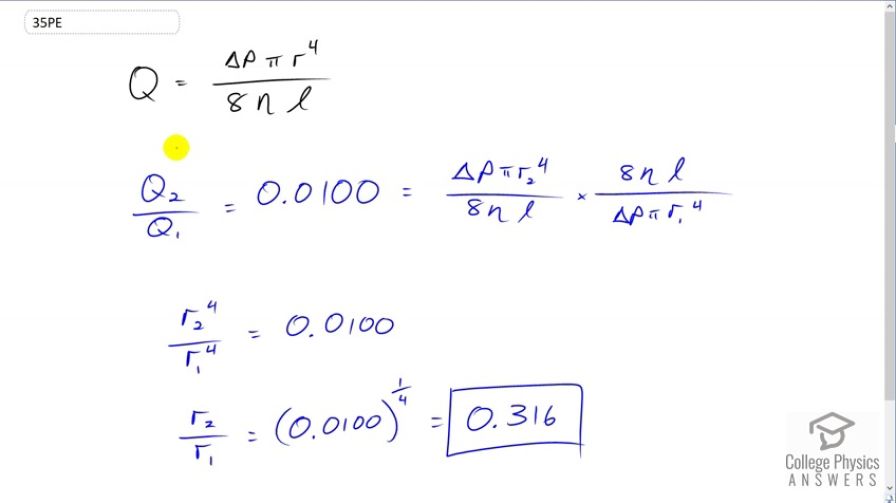 35PE
Q = ΔP π r⁴ / 8 η l
Q₂ / Q₁ = 0.0100 = ΔP π r₂⁴ / 8 η l × 8 η l / ΔP π r₁⁴
r₂⁴ / r₁⁴ = 0.0100
r₂ / r₁ = (0.0100)^(1/4) = 0.316
College Physics
ANSWERS